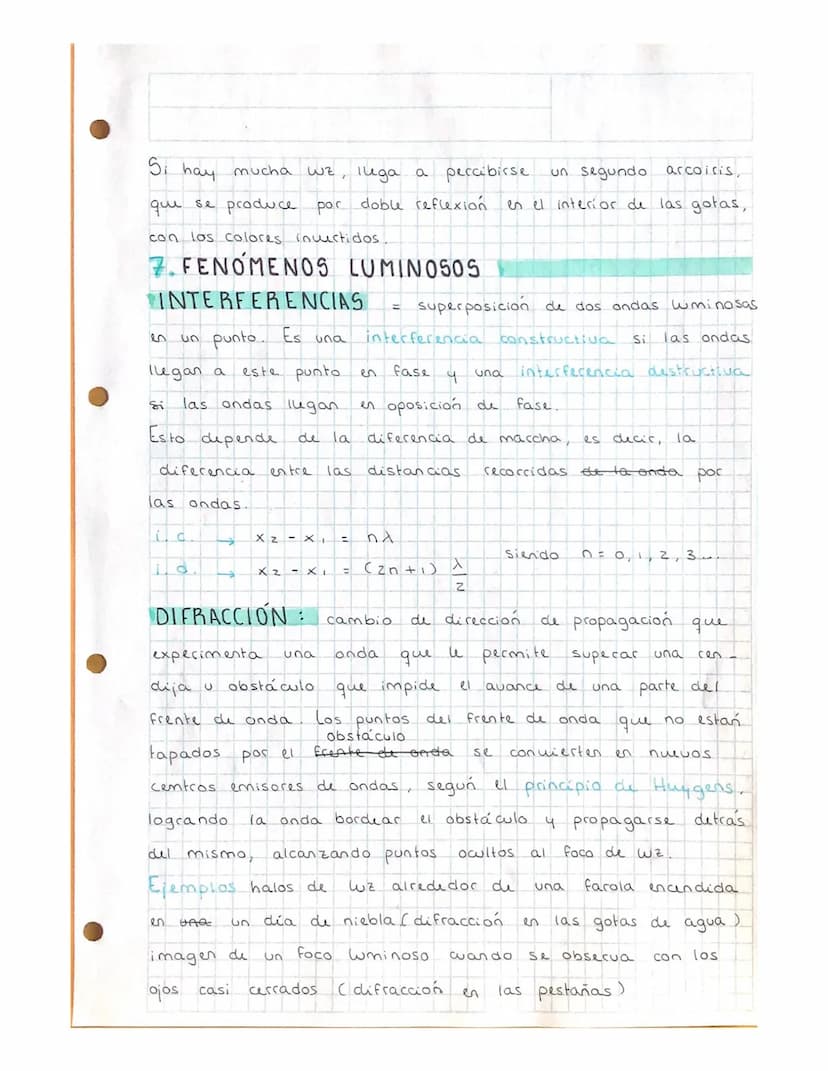 Si hay mucha luz, llega a percibirse un segundo arcoiris,
que se produce por doble reflexión en el interior de las gotas,
con los colores invertidos.
7. FENÓMENOS LUMINOSOS
INTERFERENCIAS = superposición de dos ondas luminosas
en un punto. Es una interferencia constructiva si las ondas
llegan a este punto en fase y una interferencia destructiva
si las ondas llegan en oposición de fase.
Esto depende de la diferencia de marcha, es decir, la
diferencia entre las distancias recorridas de la onda por
las ondas.
i.c. → x2 - x1 = nλ
siendo n = 0, 1, 2, 3...
i.d. → x2 - x1 = (2n+1) λ/2
DIFRACCIÓN: cambio de dirección de propagación que
experimenta una onda que le permite superar una ren-
dija u obstáculo que impide el avance de una parte del
frente de onda. Los puntos del frente de onda que no están
obstáculo
tapados por el frente de onda se convierten en nuevos
centros emisores de ondas, según el principio de Huygens,
logrando la onda bordear el obstáculo y propagarse detrás
del mismo, alcanzando puntos ocultos al foco de luz.
Ejemplos halos de luz alrededor de una farola encendida
en una un día de niebla (difracción en las gotas de agua)
imagen de un foco luminoso cuando se observa con los
ojos casi cerrados (difracción en las pestañas)